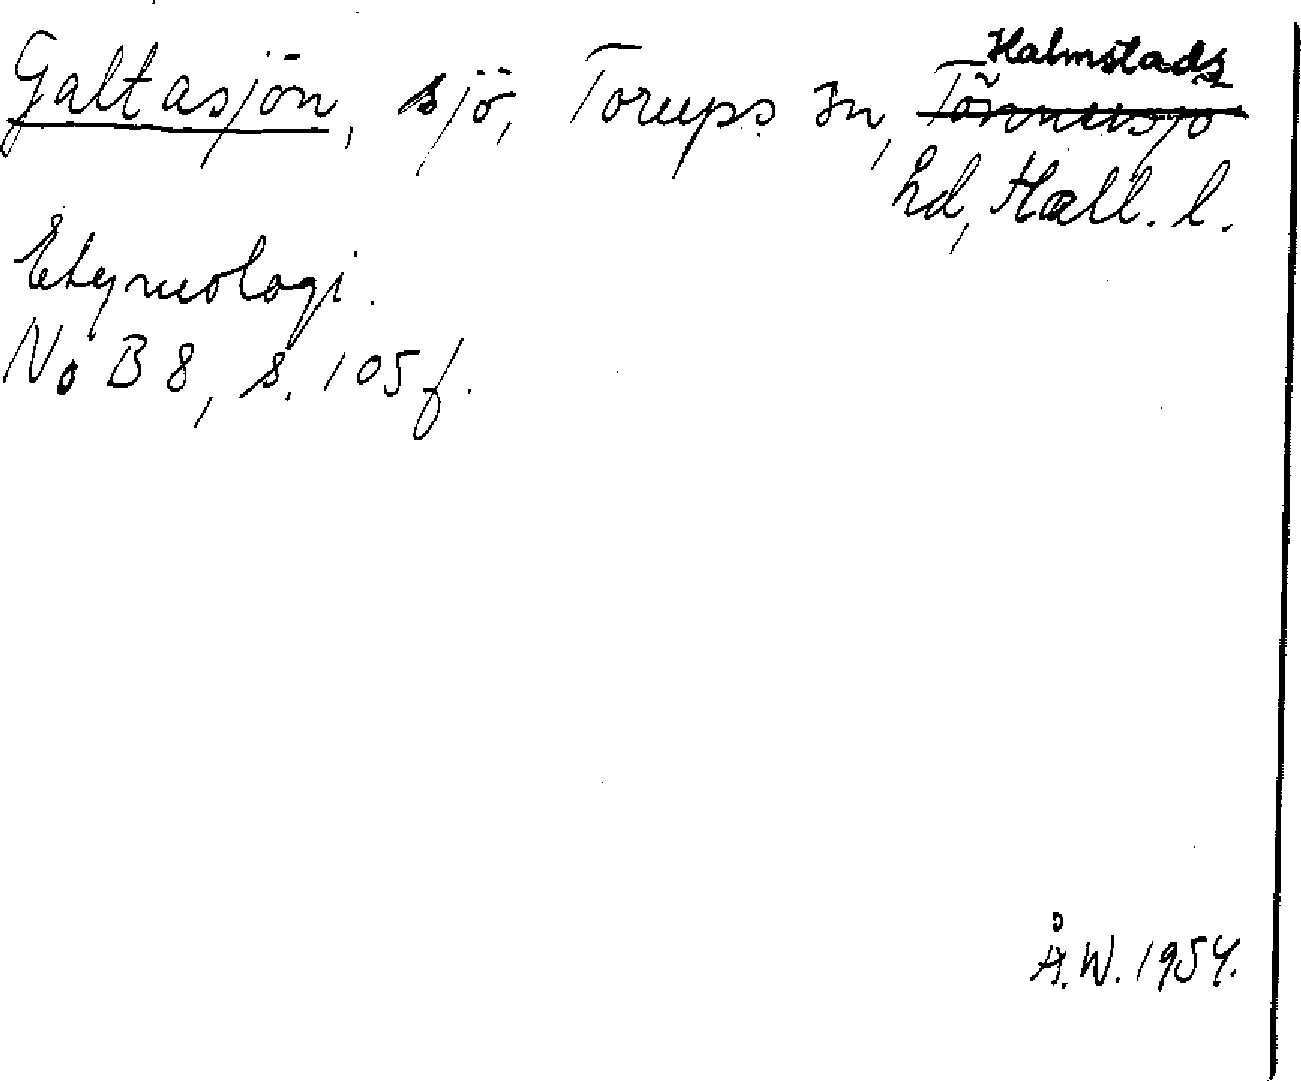 Galtasjön, sjö, Torups sn, Halmstads
hd, Hall. l.
Etymologi.
NoB 8, s. 105 f.
Å.W. 1954.